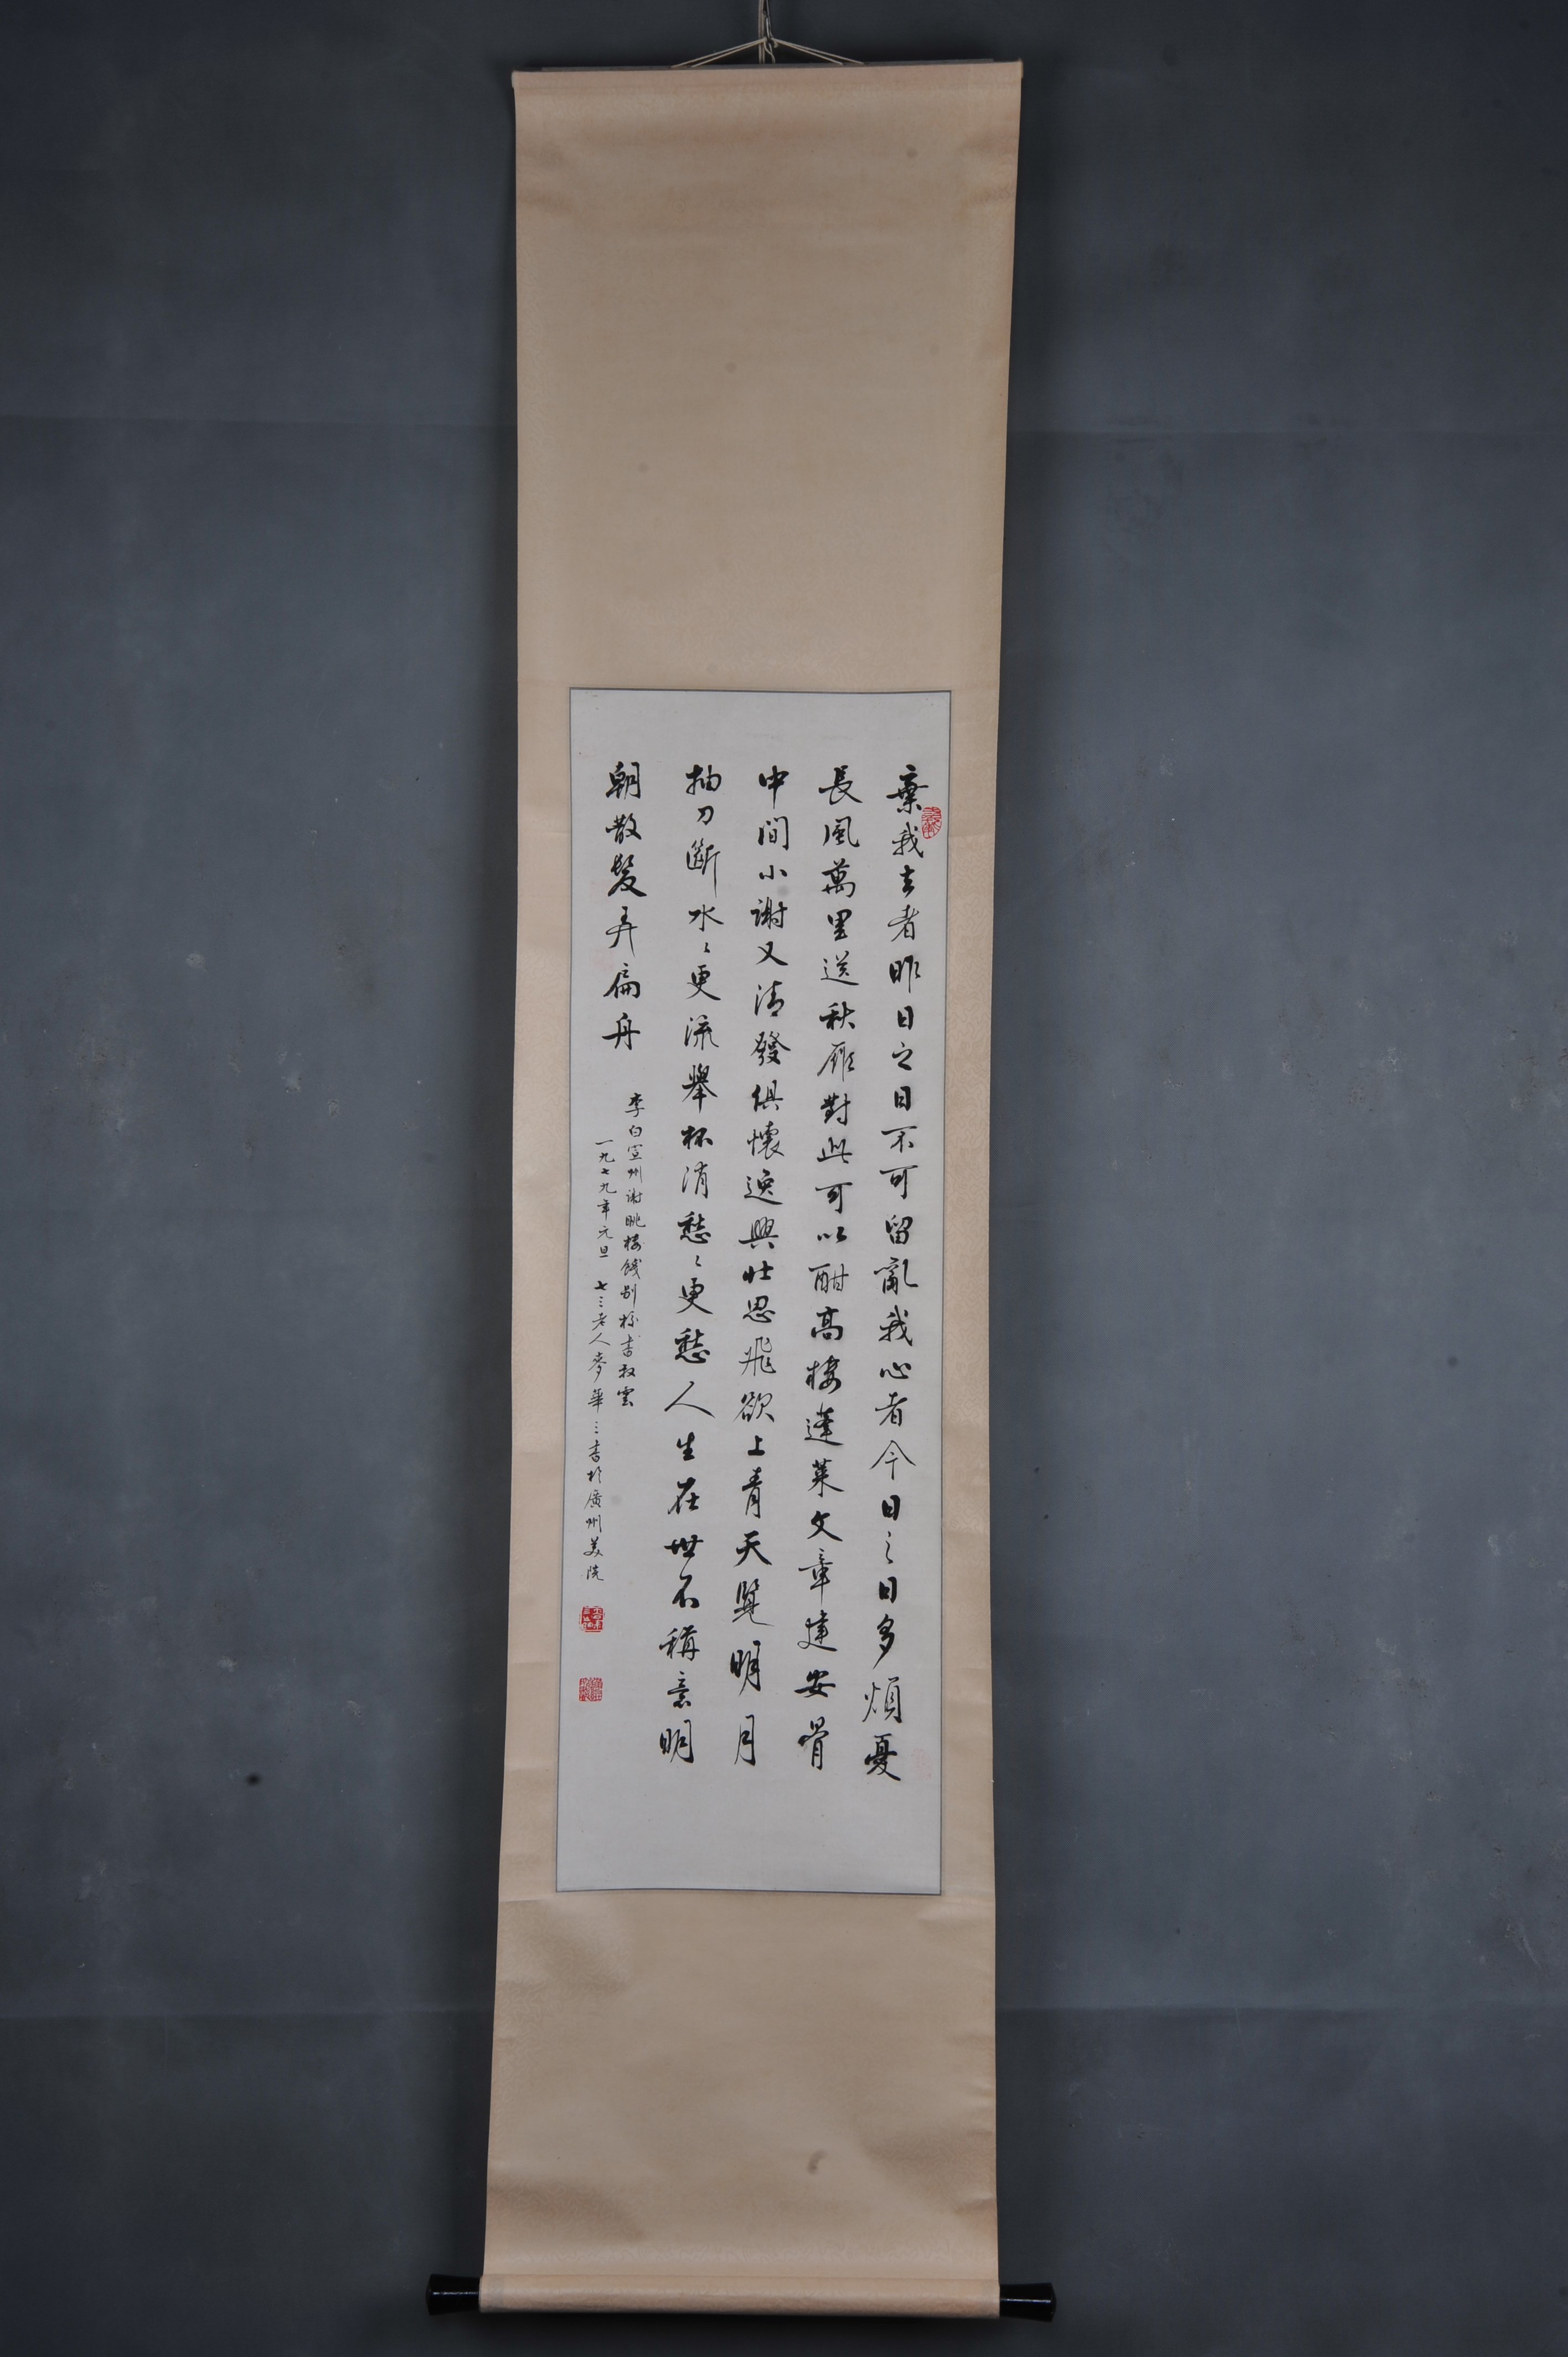 棄我去者昨日之日不可留亂我心者今日之日多煩憂
長風萬里送秋雁對此可以酣高樓蓬萊文章建安骨
中间小謝又清發俱懷逸興壯思飛欲上青天覽明月
抽刀斷水〻更流舉杯消愁〻更愁人生在世不稱意明
朝散髮弄扁舟
李白宣州謝眺樓餞別校書叔雲
一九七九年元旦 七三老人麥華三書於廣州美院